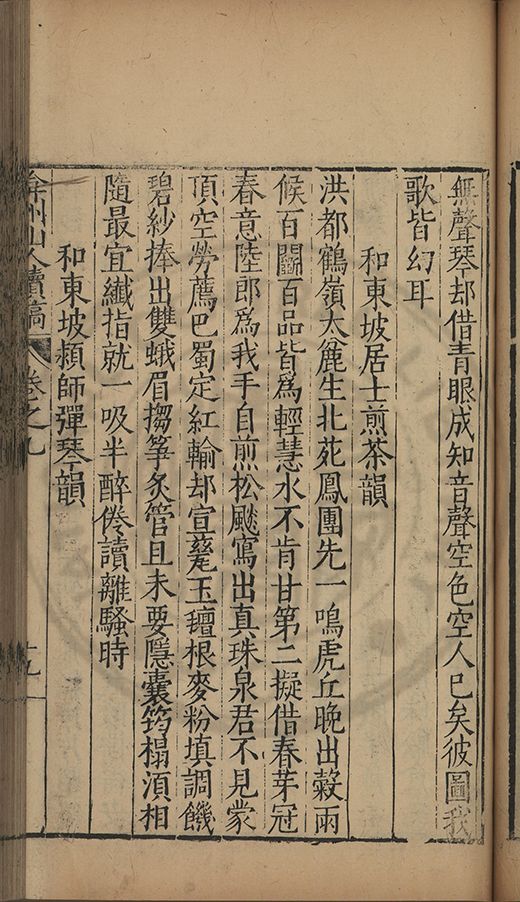 無聲琴却借青眼成知音聲空色空人已矣彼圖我
歌皆幻耳
和東坡居士煎茶韻
洪都鶴嶺太麄生北苑鳳團先一鳴虎丘晚出穀雨
候百鬬百品皆爲輕慧水不肯甘第二擬借春芽冠
春意陸郎爲我手自煎松飈寫出真珠泉君不見蒙
頂空勞薦巴蜀定紅輸却宣甆玉𤮘根麥粉填調饑
碧紗捧出雙蛾眉搊筝炙管且未要隱囊筠榻湏相
隨最宜纖指就一吸半醉倦讀離騷時
和東坡頴師彈琴韻
弇州山人續稿 卷之九 十九